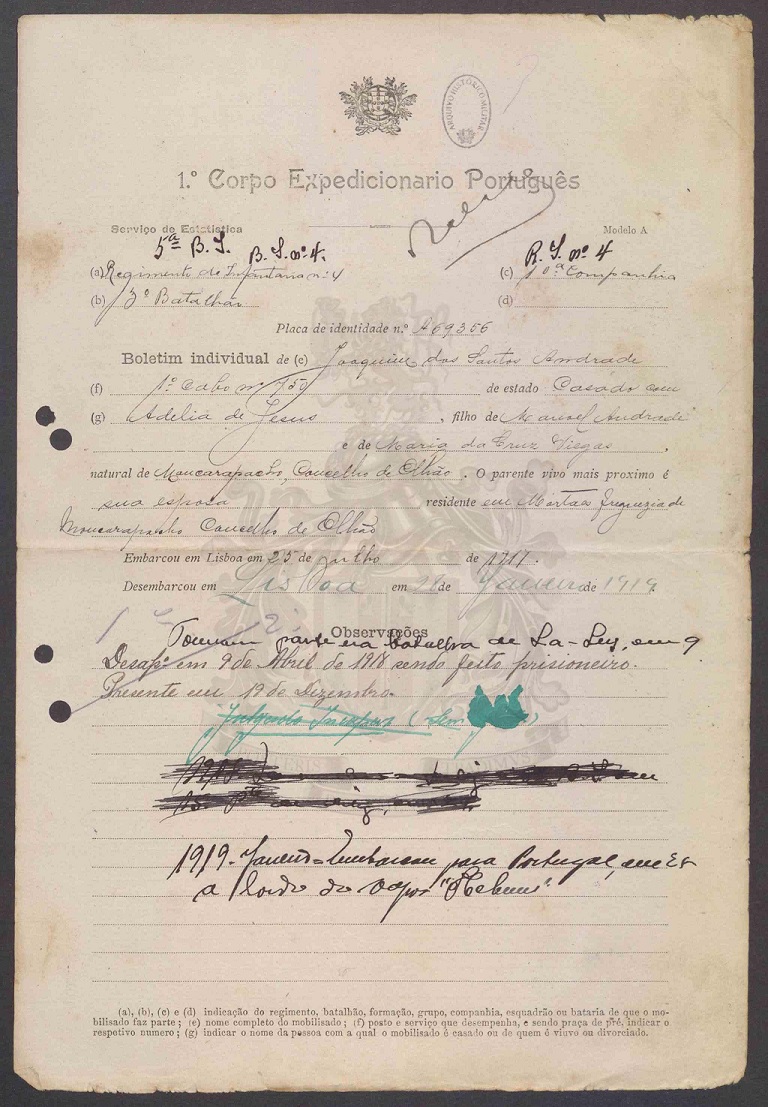 ARQUIVO HISTÓRICO MILITAR
1.º Corpo Expedicionario Português
Serviço de Estatistica
Modelo A
5ª B. I. B. I. nº 4.
R. I. nº 4
(a) Regimento de Infantaria nº 4
(c) 10ª Companhia
(b) 3º Batalhão
(d)
Placa de identidade n.º A69356
Boletim individual de (c) Joaquim dos Santos Andrade
(f) 1º Cabo nº 759 de estado Casado com
(g) Adelia de Jesus, filho de Manoel Andrade
e de Maria da Cruz Viegas,
natural de Moncarapacho, Concelho de Olhão. O parente vivo mais proximo é
sua esposa residente em freguezia de
Moncarapacho Concelho de Olhão
Embarcou em Lisboa em 25 de julho de 1917.
Desembarcou em Lisboa em 28 de Janeiro de 1919.
Observações
Tomou parte na batalha de La-Lys, em 9
Desapº em 9 de Abril de 1918 sendo feito prisioneiro.
Presente em 19 de Dezembro.
Julgado Incapaz (sem
1919 - Janeiro = Embarcou para Portugal, em
a bordo do vapor
(a), (b), (c) e (d) indicação do regimento, batalhão, formação, grupo, companhia, esquadrão ou bataria de que o mo-
bilisado faz parte; (e) nome completo do mobilisado; (f) posto e serviço que desempenha, e sendo praça de pré, indicar o
respetivo numero; (g) indicar o nome da pessoa com a qual o mobilisado é casado ou de quem é viuvo ou divorciado.